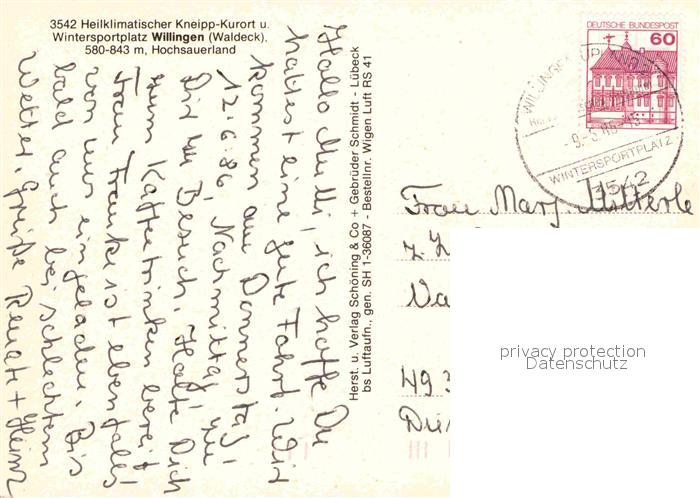 3542 Heilklimatischer Kneipp-Kurort u.
Wintersportplatz Willingen (Waldeck),
580-843 m, Hochsauerland
Hallo Mulli, ich hoffe Du
hattest eine gute Fahrt. Wir
kommen am Donnerstag,
12.6.86, Nachmittag, zu
Dir zu Besuch. Halte Dich
zum Kaffeetrinken bereit,
Frau Franke ist ebenfalls
von uns eingeladen. Bis
bald auch bei schlechtem
Wetter. Grüße Renate + Heinz
Herst. u. Verlag Schöning & Co + Gebrüder Schmidt - Lübeck
bs Luftaufn., gen. SH 1-36087 - Bestellnr. Wigen Luft RS 41
DEUTSCHE BUNDESPOST
60
WILLINGEN
WINTERSPORTPLATZ
3542
Frau Marg. Mitterle
z.
49
privacy protection
Datenschutz